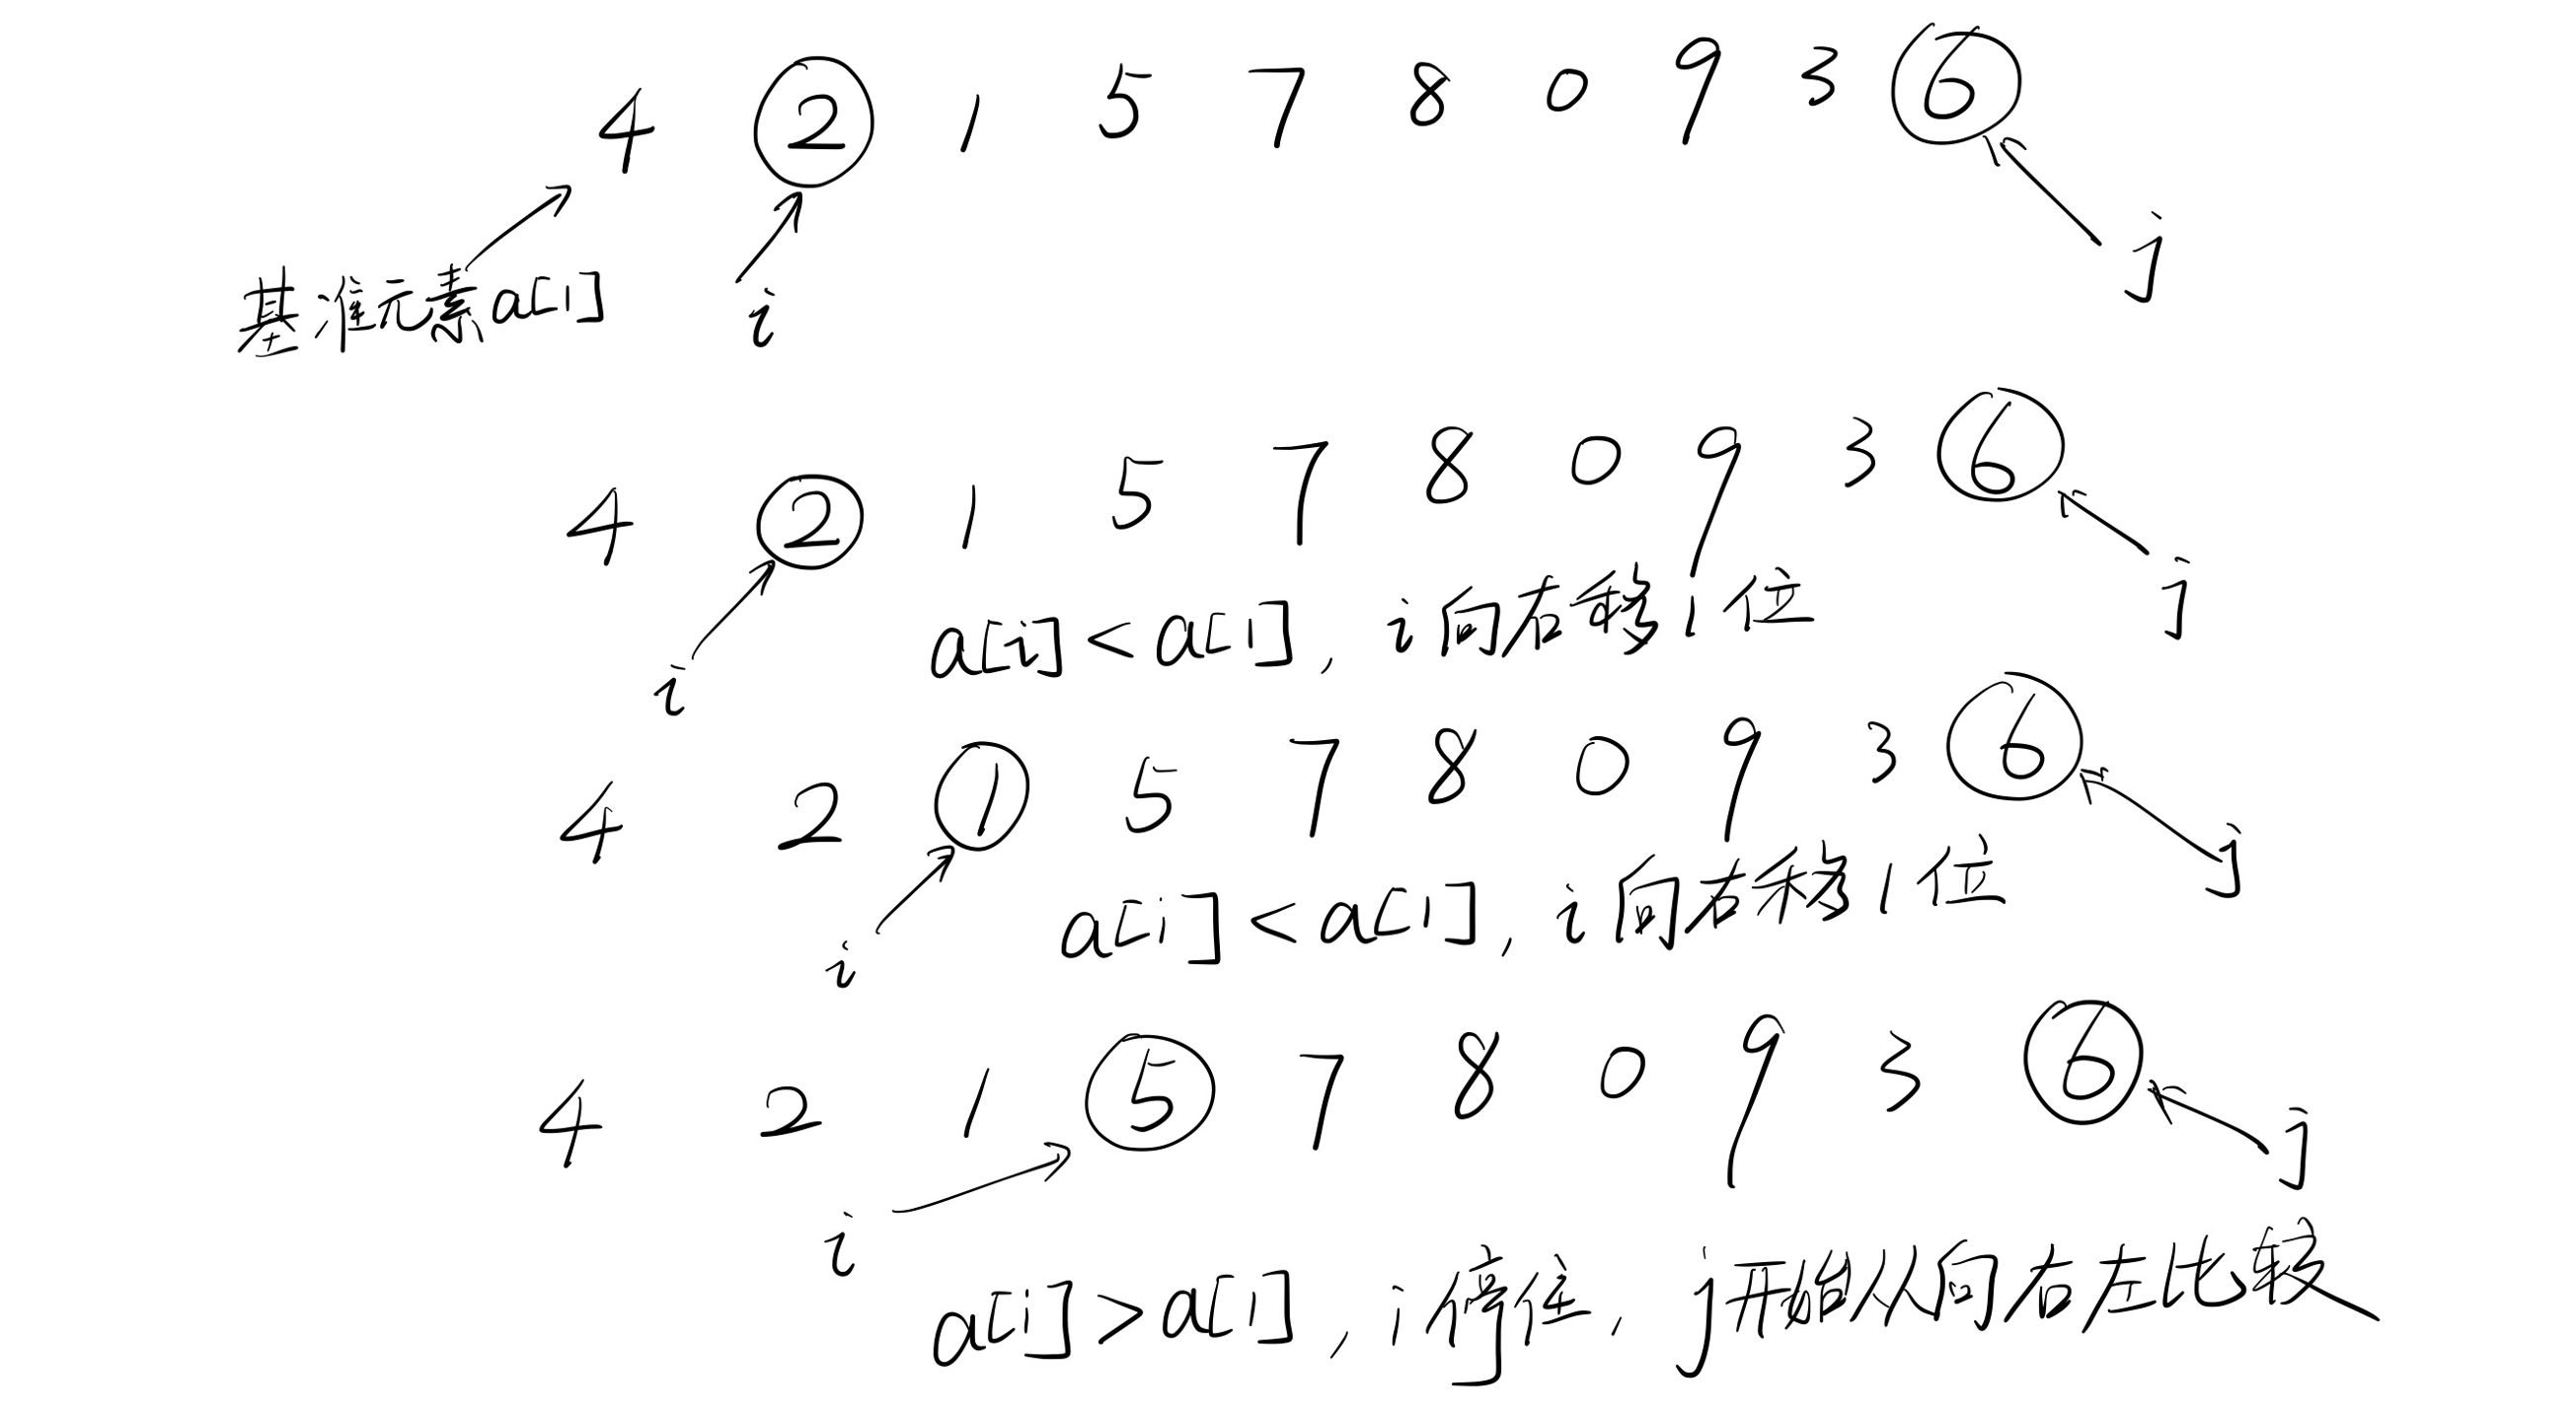 4 2 1 5 7 8 0 9 3 6
基准元素a[1] i j
4 2 1 5 7 8 0 9 3 6
a[i]<a[1], i向右移1位
i j
4 2 1 5 7 8 0 9 3 6
a[i]<a[1], i向右移1位
i j
4 2 1 5 7 8 0 9 3 6
i j
a[i]>a[1], i停住, j开始从向右左比较